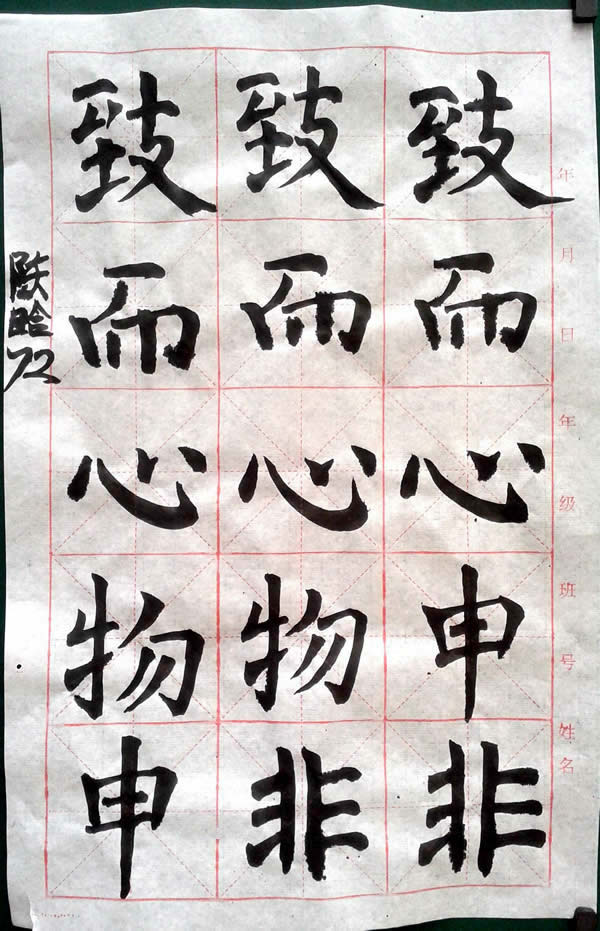 年 月 日 年级 班 号 姓名
致而心申非
致而心物非
致而心物申
陈 72